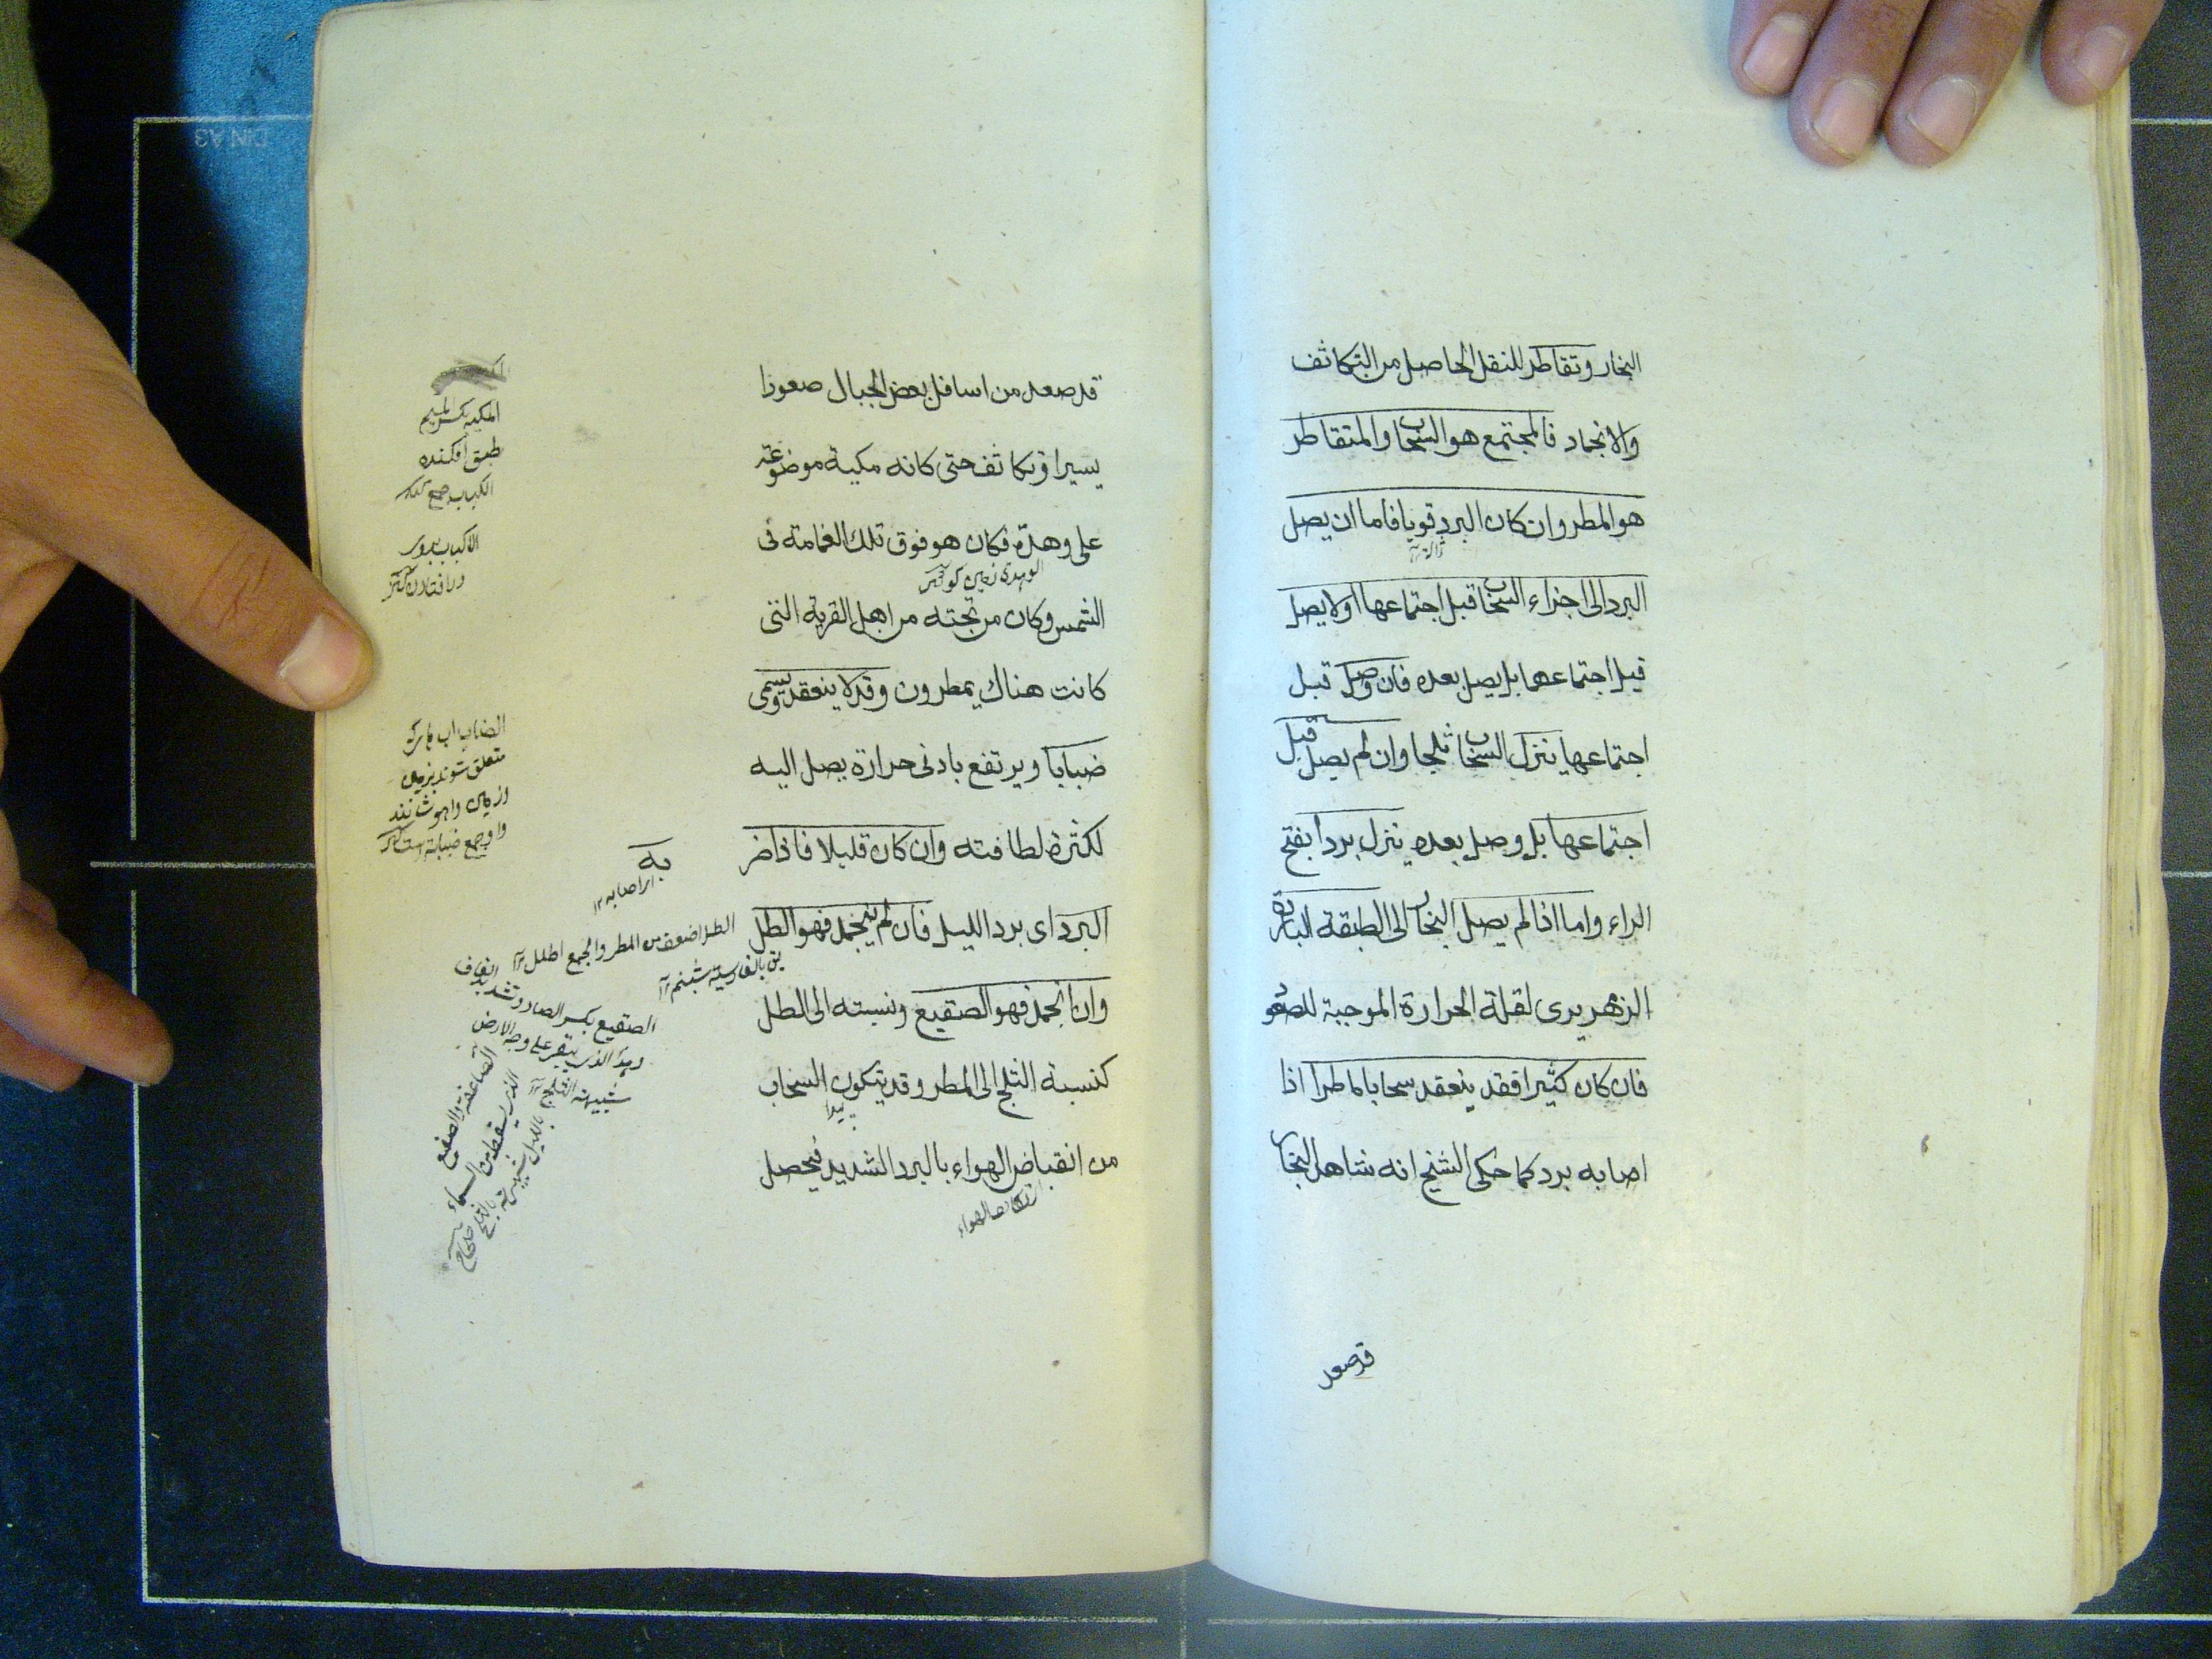 البخار وتقاطر للثقل الحاصل من التكاثف
والانجماد فالمجتمع هو السحاب والمتقاطر
هو المطر وان كان البرد قويا فاما ان يصل
البرد الى اجزاء السحاب قبل اجتماعها اولا يصل
قبل اجتماعها بل يصل بعده فان وصل قبل
اجتماعها ينزل السحاب ثلجا وان لم يصل قبل
اجتماعها بل وصل بعده ينزل بردا بفتح
الراء واما اذا لم يصل البخار الى الطبقة الباردة
الزهريرى لقلة الحرارة الموجبة للصعود
فان كان كثيرا فقد ينعقد سحابا ماطرا اذا
اصابه برد كما حكى الشيخ انه شاهد البخار
قد صعد
قد صعد من اسافل بعض الجبال صعودا
يسيرا وتكاثف حتى كانه مكبة موضوعة
على وهدة فكان هو فوق تلك الغمامة فى
الشمس وكان من تحته من اهل القرية التى
كانت هناك يمطرون وقد لا ينعقد ويسمى
ضبابا ويرتفع بادنى حرارة يصل اليه
لكثرة لطافته وان كان قليلا فاذا ضر
به
البرد اى برد الليل فان لم ينجمد فهو الطل
وان انجمد فهو الصقيع ونسبته الى الطل
كنسبة الثلج الى المطر وقد يتكون السحاب
من انقباض الهواء بالبرد الشديد فيحصل
المكبة بكسر الميم
الطل اضعف من المطر والجمع اطلال
يق بالفارسية شبنم
الصقيع بكسر الصاد وتشديد القاف
على وجه الارض
شبيهة الثلج
الصاعقة والصقيع
الذى يسقط من السماء
بالليل شبيهة بالثلج